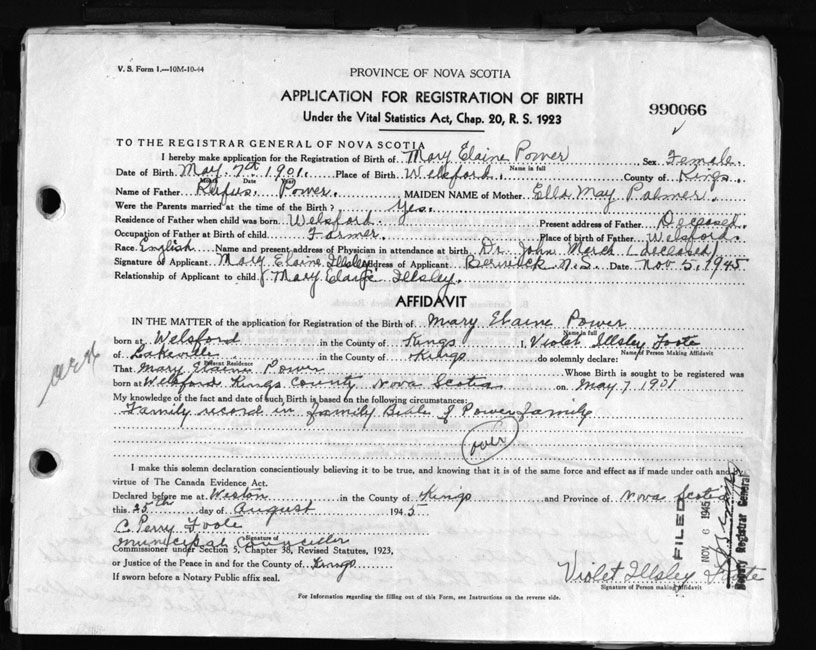 V. S. Form 1.—10M-10-44
PROVINCE OF NOVA SCOTIA
APPLICATION FOR REGISTRATION OF BIRTH
990066
Under the Vital Statistics Act, Chap. 20, R. S. 1923
TO THE REGISTRAR GENERAL OF NOVA SCOTIA
I hereby make application for the Registration of Birth of Mary Elaine Power Sex Female.
Name in full
Date of Birth May 7th 1901. Place of Birth Welsford. County of Kings.
Month Day Year
Name of Father Rufus Power. MAIDEN NAME of Mother Ella May Palmer.
Were the Parents married at the time of the Birth? Yes.
Residence of Father when child was born Welsford. Present address of Father Deceased.
Occupation of Father at Birth of child Farmer. Place of birth of Father Welsford.
Race English Name and present address of Physician in attendance at birth Dr. John (deceased)
Signature of Applicant Mary Elaine Illsley Address of Applicant Berwick N.S. Date Nov 5, 1945
Relationship of Applicant to child Mary Elaine Illsley.
AFFIDAVIT
IN THE MATTER of the application for Registration of the Birth of Mary Elaine Power
Name in full
born at Welsford in the County of Kings I, Violet Illsley Foote
Name of Person Making Affidavit
of Lakeville in the County of Kings do solemnly declare:
Present Residence
That Mary Elaine Power Whose Birth is sought to be registered was
born at Welsford Kings County Nova Scotia on May 7 1901
My knowledge of the fact and date of such Birth is based on the following circumstances:
Family record in family Bible of Power family
over
I make this solemn declaration conscientiously believing it to be true, and knowing that it is of the same force and effect as if made under oath and by
virtue of The Canada Evidence Act.
Declared before me at Weston in the County of Kings and Province of Nova Scotia
this 25th day of August 1945
C. Perry Foote
Signature of
Municipal Councillor
Commissioner under Section 5, Chapter 38, Revised Statutes, 1923,
or Justice of the Peace in and for the County of Kings
If sworn before a Notary Public affix seal.
Violet Illsley Foote
Signature of Person making Affidavit
FILED
NOV 6 1945
Deputy Registrar General
For Information regarding the filling out of this Form, see Instructions on the reverse side.